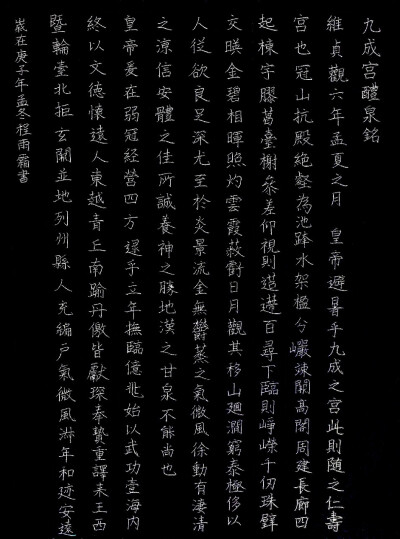 九成宫醴泉銘
維貞觀六年孟夏之月 皇帝避暑乎九成之宫此則隨之仁壽
宫也冠山抗殿絶壑為池跨水架楹分巗竦闕高閣周建長廊四
起棟宇膠葛臺榭叅差仰視則迢遰百尋下臨則崢嶸千仞珠璧
交暎金碧相暉照灼雲霞蔽虧日月觀其移山廻澗窮泰極侈以
人從欲良足深尤至於炎景流金無欝蒸之氣微風徐動有淒清
之凉信安體之佳所誠養神之勝地漢之甘泉不能尚也
皇帝爰在弱冠經營四方逮乎立年撫臨億兆始以武功壹海内
終以文德懷遠人東越青丘南踰丹儌皆獻琛奉贄重譯来王西
暨輪臺北拒玄闕並地列州縣人充編户氣微風淋年和迩安遠
嵗在庚子年孟冬程雨霜書